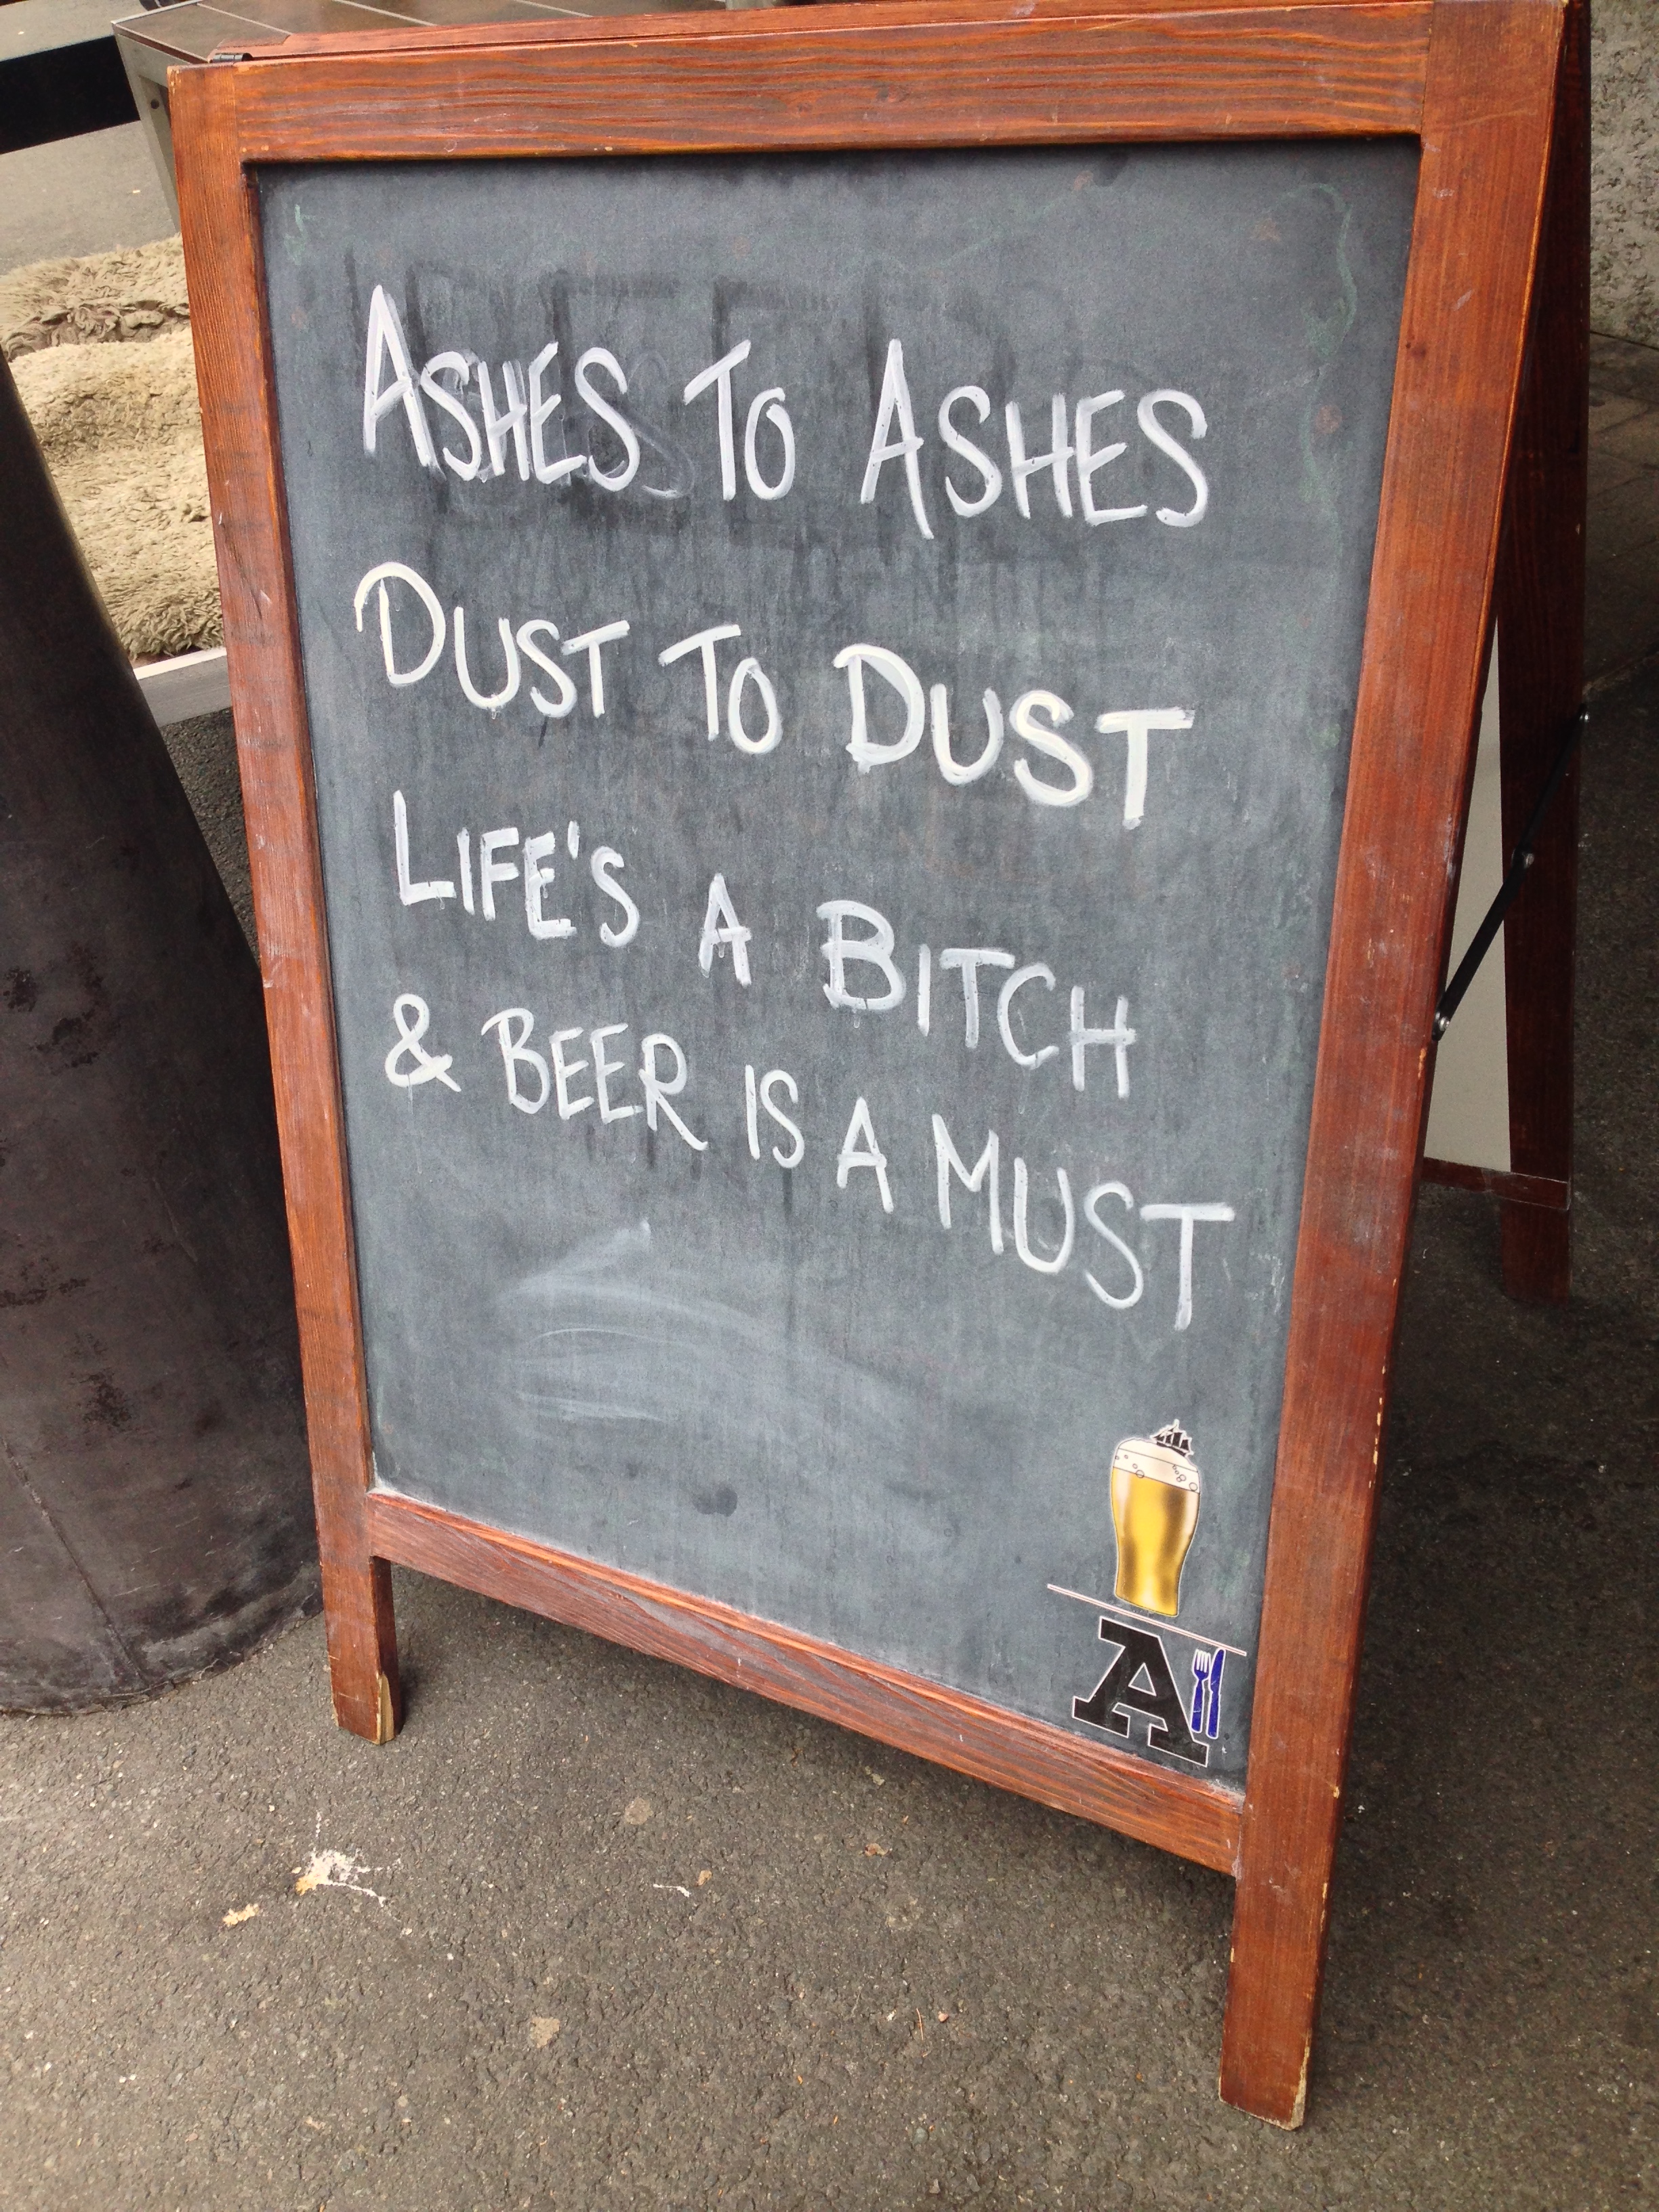 ASHES TO ASHES
DUST TO DUST
LIFE'S A BITCH
& BEER IS A MUST
A